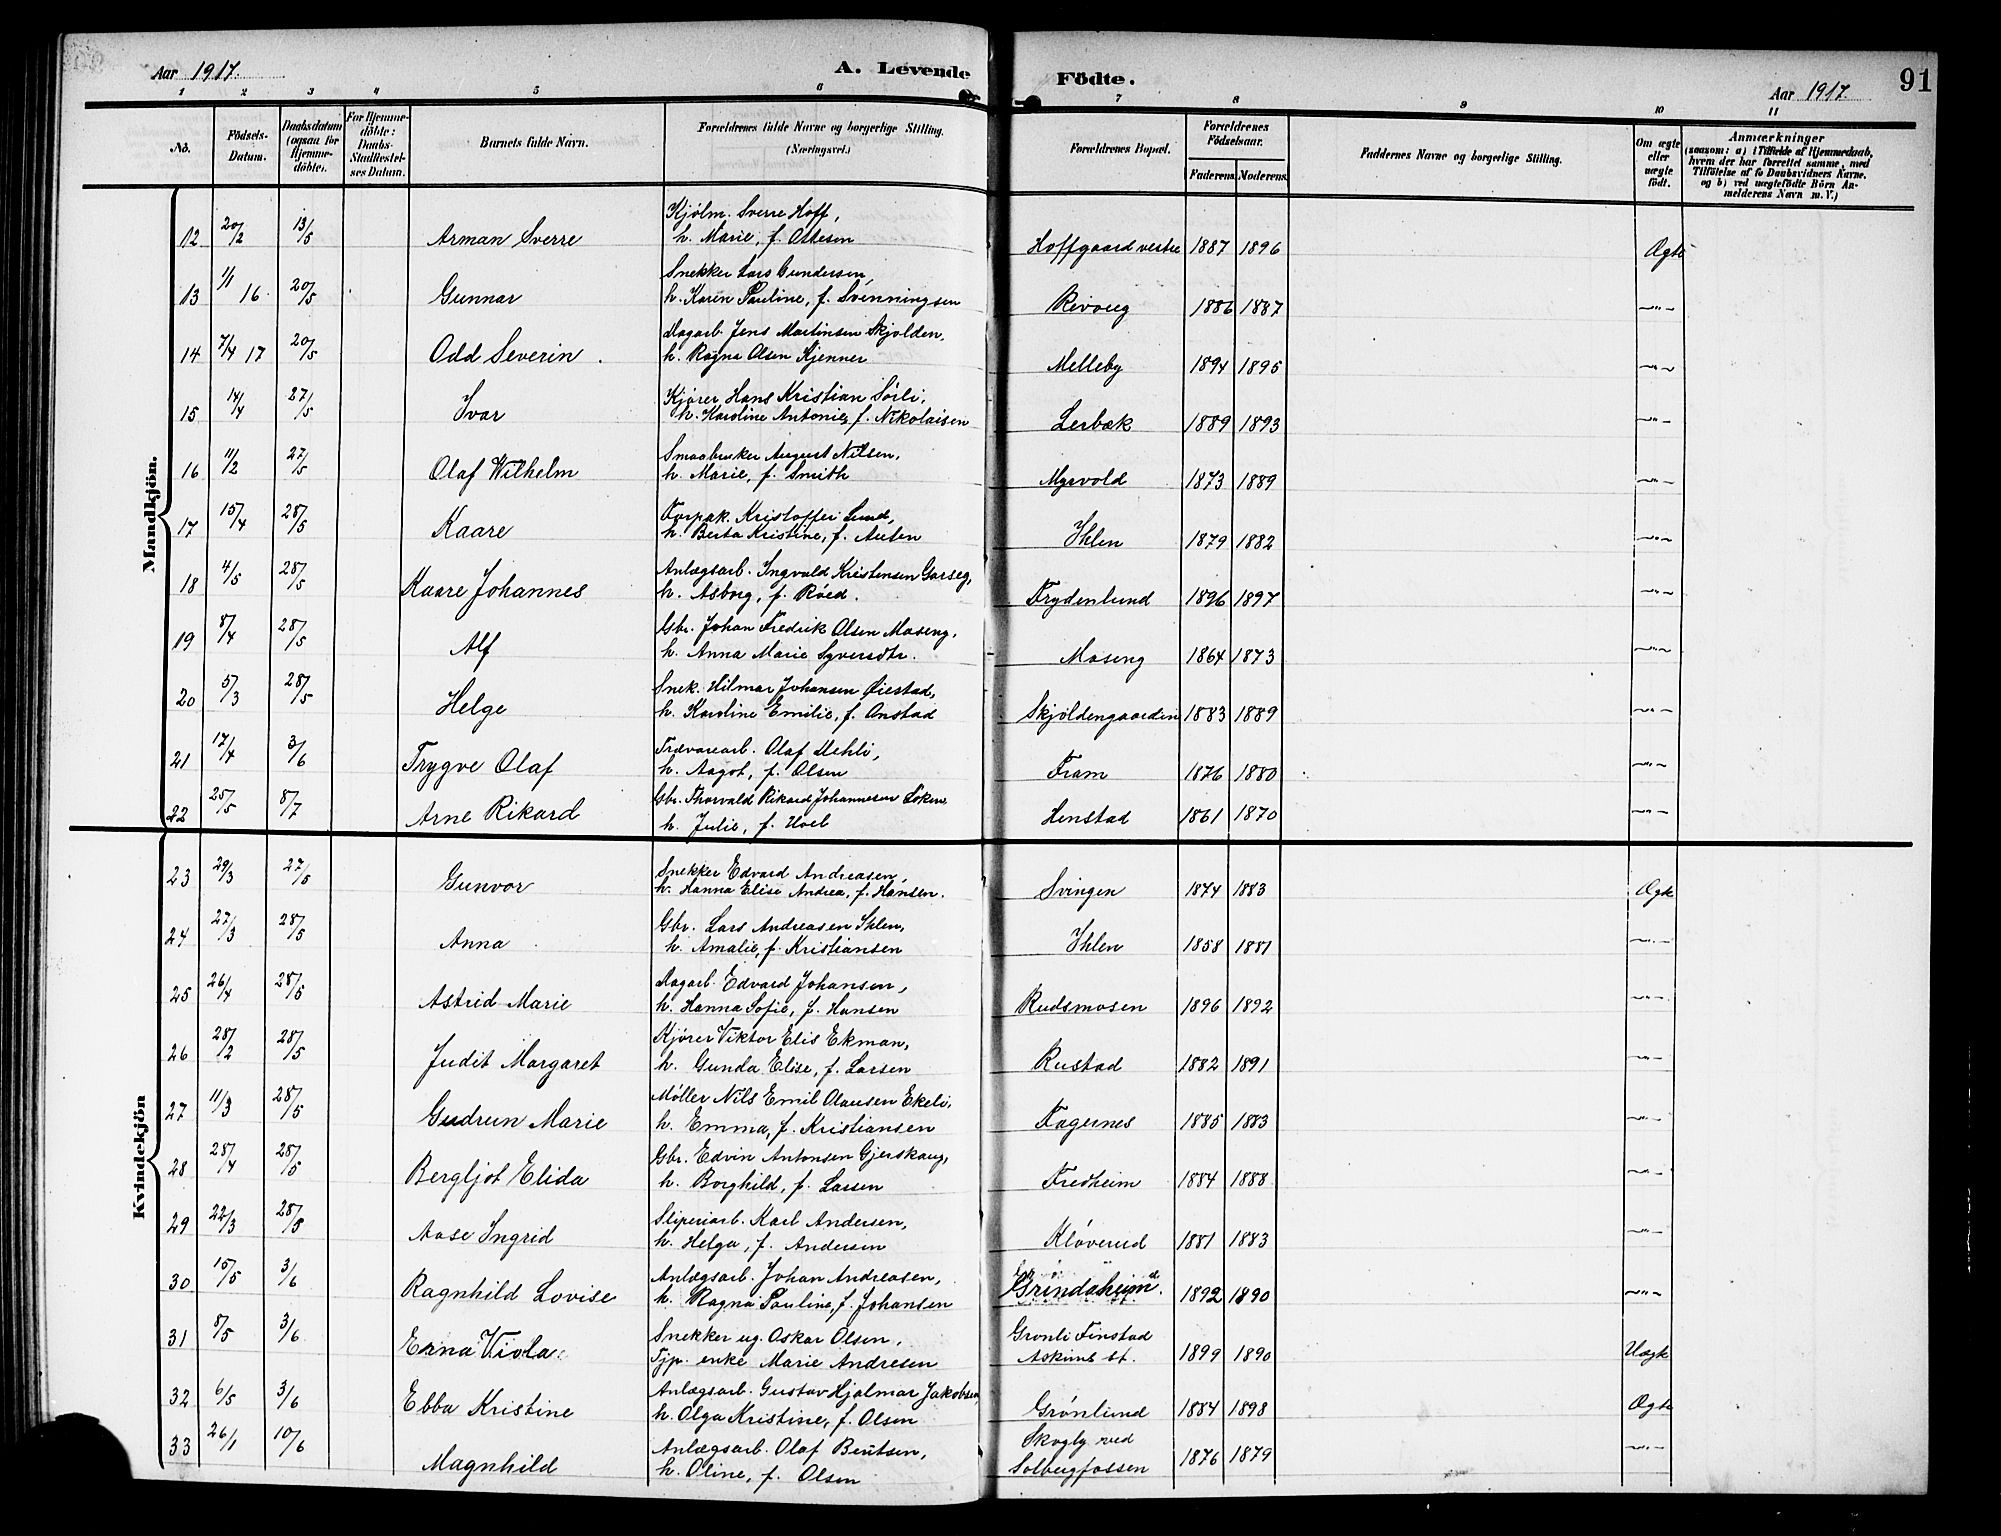 Aar 1917.
A. Levende Födte.
Aar 1917.
91
1 2 3 4 5 6 7 8 9 10 11
No.
Födsels-Datum.
Daabsdatum (ogsaa for Hjemmedöbte).
For Hjemmedöbte: Daabs-Stadfæstelses Datum.
Barnets fulde Navn.
Forældrenes fulde Navne og borgerlige Stilling. (Næringsvei.)
Forældrenes Bopæl.
Forældrenes Födselsaar.
Faderens. Moderens.
Faddernes Navne og borgerlige Stilling.
Om ægte eller uægte födt.
Anmærkninger
(saasom: a) i Tilfælde af Hjemmedaab, hvem der har forrettet samme, med Tilföielse af to Daabsvidners Navne, og b) ved uægtefödte Börn Anmelderens Navn m. V.)
Mandkjön.
12 20/2 13/5 Arman Sverre Kjølm. Sverre Hoff,
h. Marie, f. Ottesen Hoffgaard vestre 1887 1896 Ægte
13 1/1 16. 20/5 Gunnar Snekker Lars Gundersen,
h. Karen Pauline, f. Svenningsen Revoug 1886 1887 —"—
14 7/4 17 20/5 Odd Severin. Dagarb. Jens Martinsen Skjolden,
h. Ragna Olsen Kjenner Melleby 1894 1895 —"—
15 14/4 27/5 Ivar Kjører Hans Kristian Sørli,
h. Karoline Antonie, f. Nikolaisen Lerbæk 1889 1893 —"—
16 11/2 27/5 Olaf Wilhelm Smaabruker August Nilsen,
h. Marie, f. Smith Myrvold 1873 1889 —"—
17 15/4 28/5 Kaare Forpak. Kristoffer Lund,
h. Berta Kristine, f. Ihlen 1879 1882 —"—
18 4/5 28/5 Kaare Johannes Anlægsarb. Ingvald Kristensen Garseg,
h. Asborg, f. Røed. Frydenlund 1896 1897 —"—
19 8/4 28/5 Alf Gbr. Johan Fredrik Olsen Moseng,
h. Anna Marie Syversdtr. Moseng 1864 1873 —"—
20 5/3 28/5 Helge Snek. Hilmar Johansen Øiestad,
h. Karoline Emilie, f. Onstad Skjöldengaarden 1883 1889 —"—
21 17/4 3/6 Trygve Olaf Trævarearb. Olaf Mehli,
h. Aagot, f. Olsen Fram 1876 1880 —"—
22 25/5 8/7 Arne Rikard Gbr. Thorvald Rikard Johannesen Löken,
h. Julie, f. Hoel Henstad 1861 1870 —"—
Kvindekjön
23 29/3 27/5 Gunvor Snekker Edvard Andreasen,
h. Hanna Elise Andrea, f. Hansen. Svingen 1874 1883 Ægte
24 27/3 28/5 Anna Gbr. Lars Andreasen Ihlen,
h. Amalie, f. Kristiansen Ihlen 1858 1881 —"—
25 26/4 28/5 Astrid Marie Dagarb. Edvard Johansen,
h. Hanna Sofie, f. Hansen Rudsmosen 1896 1892 —"—
26 28/2 28/5 Judit Margaret Kjører Viktor Elis Ekman,
h. Gunda Elise, f. Larsen Rustad 1882 1891 —"—
27 11/3 28/5 Gudrun Marie Møller Nils Emil Olausen Ekeli,
h. Emma, f. Kristiansen Fagernes 1885 1883 —"—
28 28/4 28/5 Bergljot Elida Gbr. Edvin Antonsen Gjerskaug,
h. Borghild, f. Larsen Fredheim 1884 1888 —"—
29 22/3 28/5 Aase Ingrid Sliperiarb. Karl Andersen,
h. Helga, f. Andersen Kløverud 1881 1883 —"—
30 15/5 3/6 Ragnhild Lovise Anlægsarb. Johan Andreasen,
h. Ragna Pauline, f. Johansen Grindaheim. 1892 1890 —"—
31 8/5 3/6 Erna Viola. Snekker ug. Oskar Olsen, Grønli Finstad
Tjp. enke Marie Andresen Askims st. 1899 1890 Uægte
32 6/5 3/6 Ebba Kristine Anlægsarb. Gustav Hjalmar Jakobsen,
h. Olga Kristine, f. Olsen Grønlund 1884 1898 Ægte
33 26/1 10/6 Magnhild Anlægsarb. Olaf Bentsen, Skogly ved
h. Oline, f. Olsen Solbergfossen 1876 1879 —"—